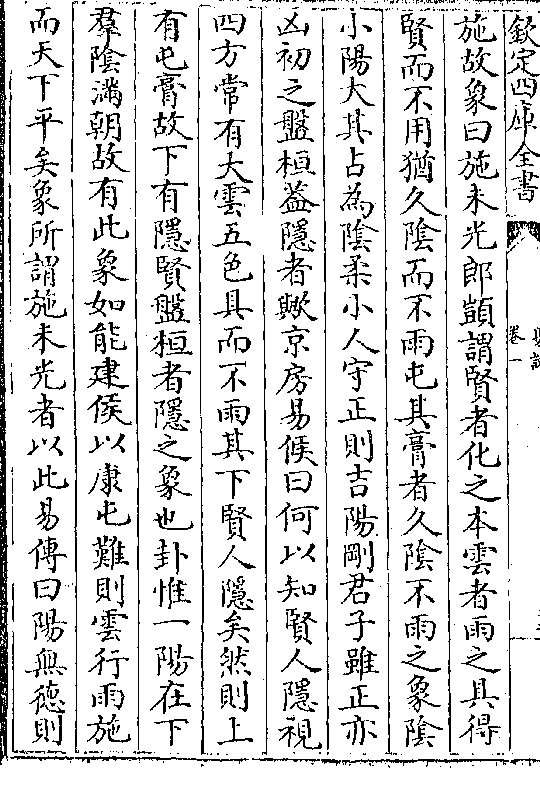 欽定四庫全書
卷一
施故象曰施未光郎顗謂賢者化之本雲者雨之具得
賢而不用猶久陰而不雨屯其膏者久陰不雨之象陰
小陽大其占為陰柔小人守正則吉陽剛君子雖正亦
凶初之盤桓葢隱者歟京房易候曰何以知賢人隱視
四方常有大雲五色具而不雨其下賢人隱矣然則上
有屯膏故下有隱賢盤桓者隱之象也卦惟一陽在下
羣陰滿朝故有此象如能建侯以康屯難則雲行雨施
而天下平矣象所謂施未光者以此易傳曰陽無德則